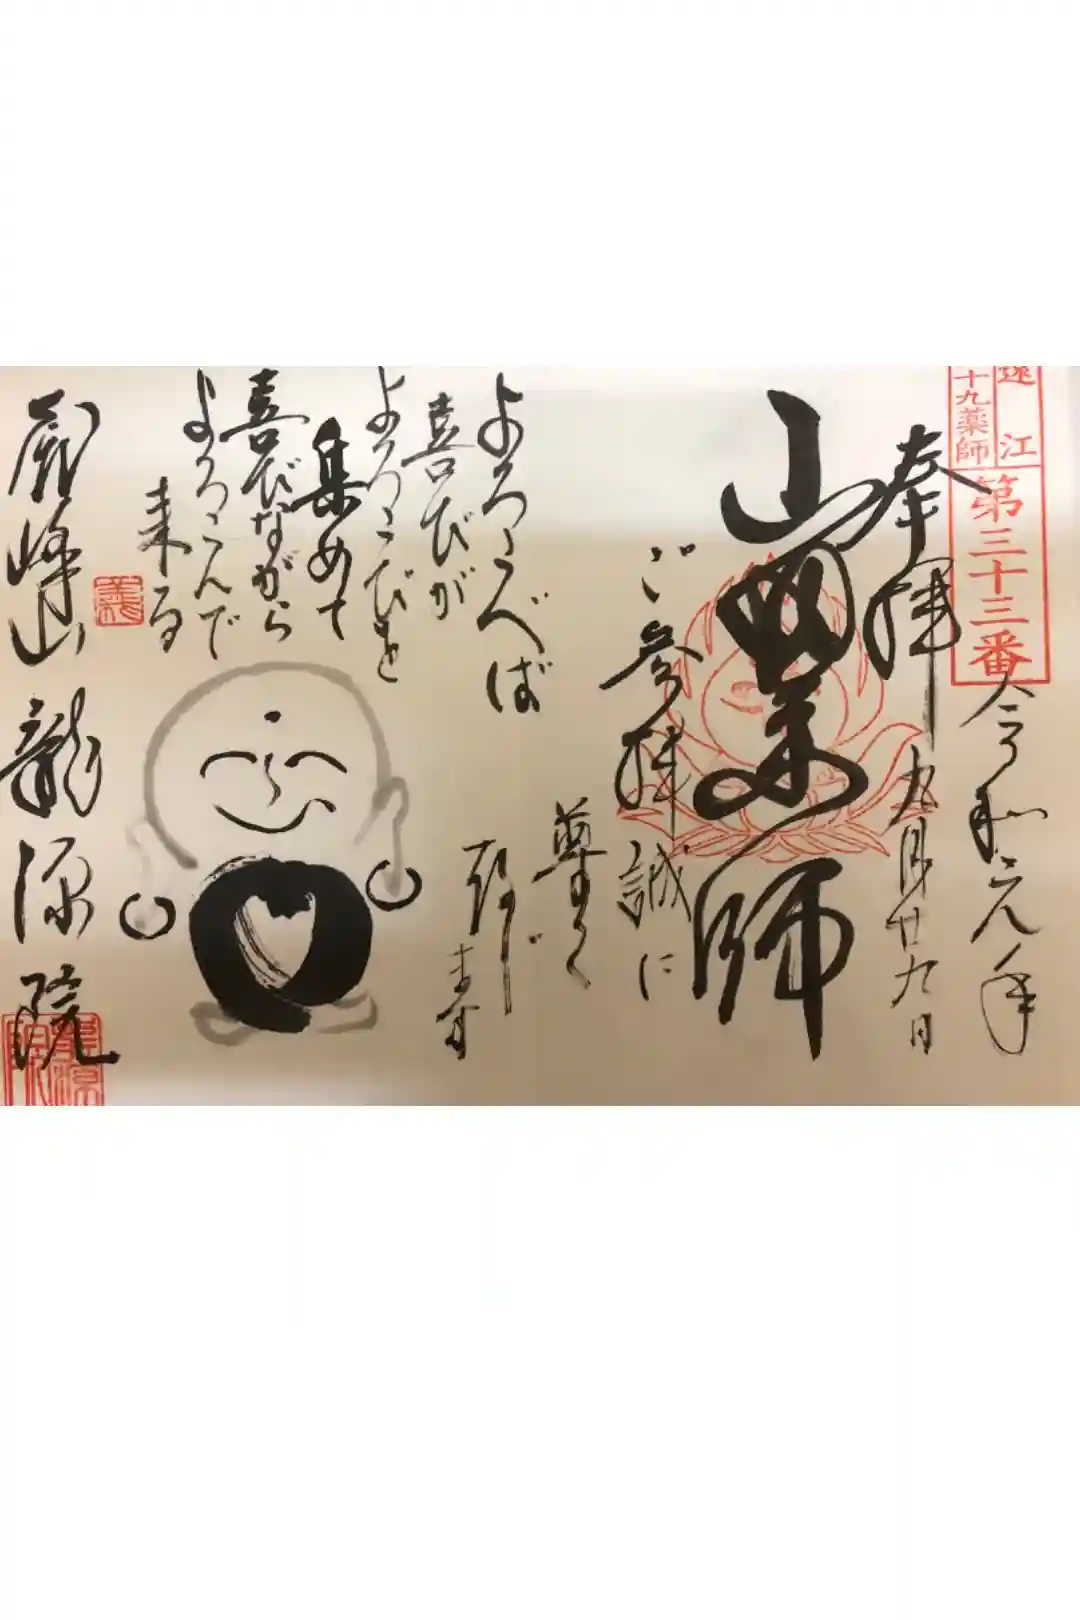 遠江
十九薬師
第三十三番
令和元年
九月廿九日
奉拝
山
薬師
ご参拝誠に
尊く
存じます
よろこべば
喜びが
よろこびを
集めて
喜びながら
よろこんで
来る
龍源院